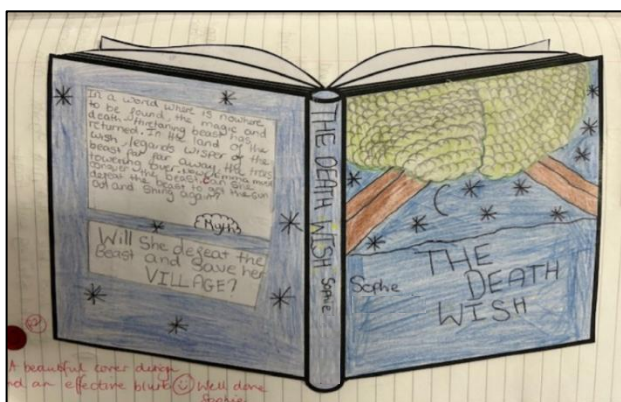 In a world where is nowhere
to be found, the magic and
death-thretaning beast has
returned. In the land of the
wish, legands wisper of the
beast far far away. His tras
towering over, now Emma must
conquer the beast can she
defeat the beast to get the sun
out and shing again?
Myth
Will she defeat the
Beast and save her
VILLAGE?
THE DEATH WISH Sophie
Sophe
THE
DEATH
WISH
A beautiful cover design
nd an effective blurb Well done
Sophie